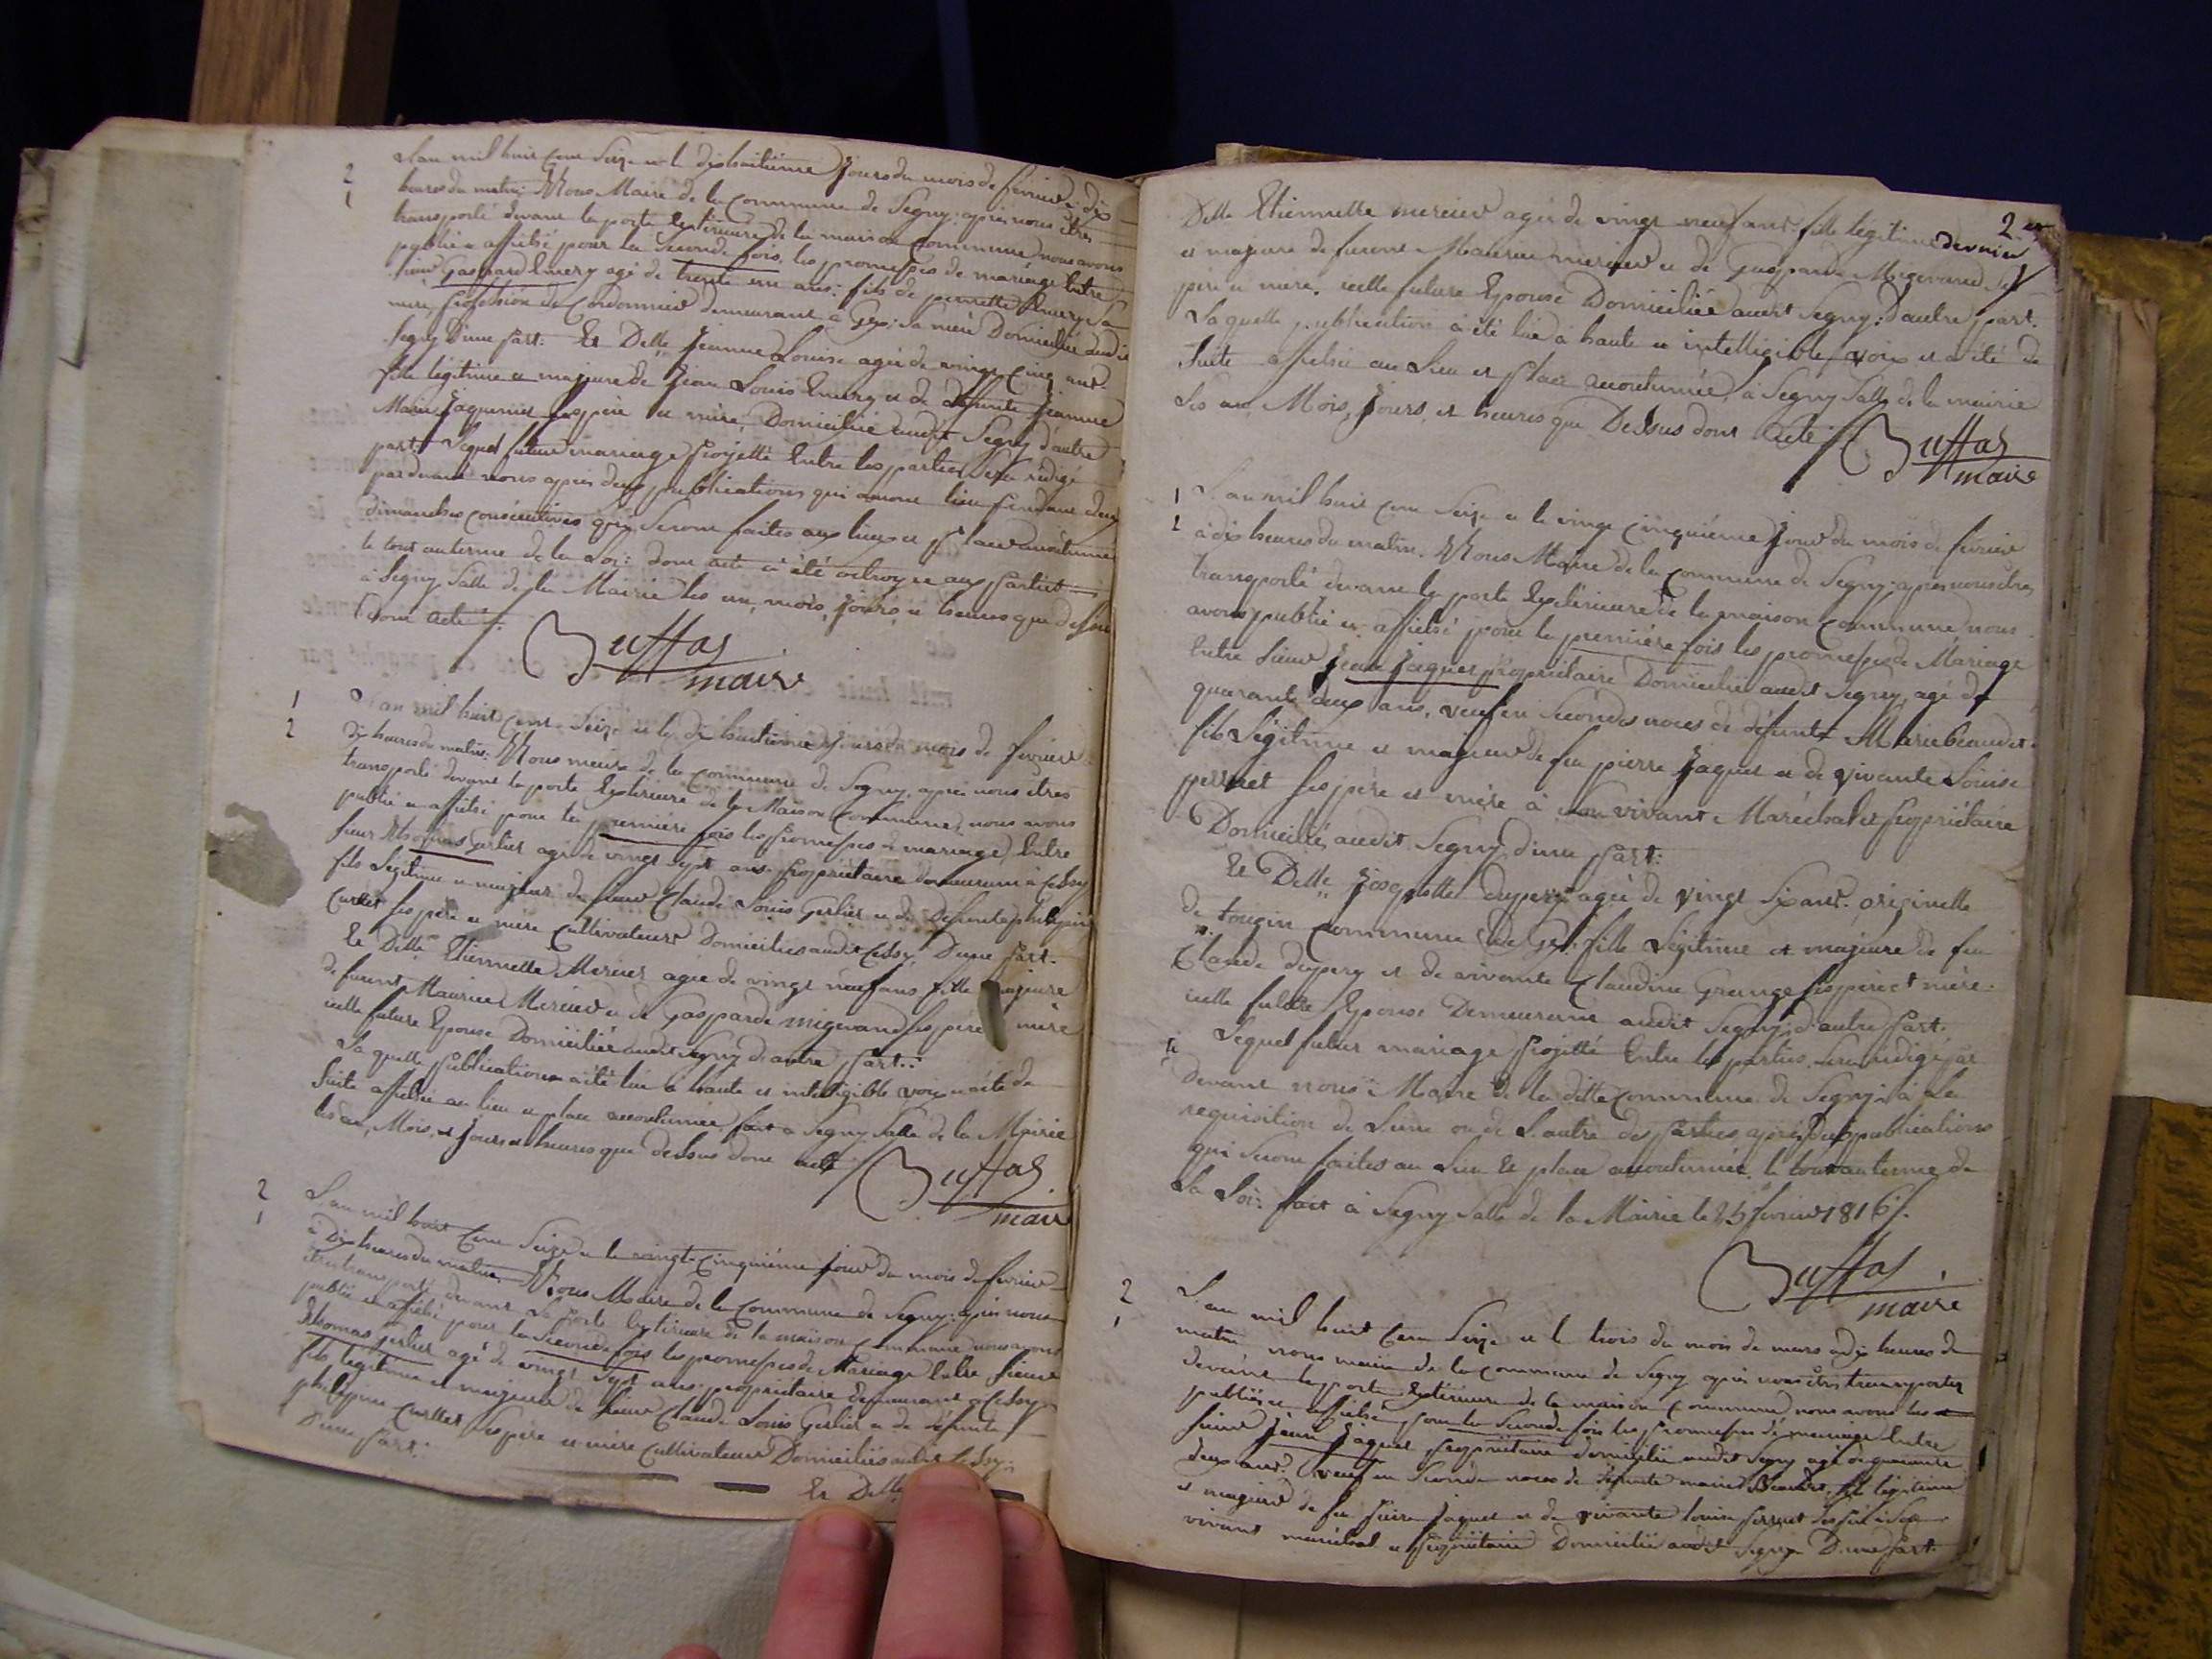 2
1
L'an mil huit cent Seize et le dixhuitième Jours du mois de fevrier à dix
heures du matin: Nous Maire de la commune de Segny: après nous êtres
transporté devant la porte Exterieure de la maison commune, nous avons
publié et affiché pour la Seconde fois, les promesses de mariage Entre
Sieur Gaspard Emery agé de trente un ans: fils de pernette Emery Sa
mère, profession de Cordonnier demeurant à Gex; Sa mère Domiciliée audit
Segny D'une part. Et Delle Jeanne Louise agée de vingt cinq ans.
fille légitime et majeure de Jean Louis Emery et de défunte Jeanne
Marie Jaquemet Ses père et mère, Domiciliée audit Segny d'autre
part. Lequel futur mariage projetté Entre les parties Sera rédigé
pardevant nous après deux publications qui auront lieu pendant deux
dimanches consécutives qui Seront faites aux lieux et place accoutumée
le tout au terme de la Loi: dont acte a été octroyée aux parties
à Segny Salle de la Mairie les an, mois, Jours, et heures que dessus
dont acte
Buffas
maire
1
2
L'an mil huit cent Seize et le dixhuitième Jours du mois de fevrier
dix heures du matin: Nous maire de la commune de Segny, après nous êtres
transporté devant la porte Exterieure de la Maison Commune, nous avons
publié et affiché pour la première fois les promesses de mariage Entre
Sieur Thomas Gerlier agé de vingt Sept ans. propriétaire demeurant à Cessy
fils Légitime et majeur de Sieur Claude Louis Gerlier et de Defunte philippine
Curtet Ses père et mère Cultivateurs Domiciliés audit Cessy, D'une part.
Et Delle Etiennette Mercier agée de vingt neuf ans fille majeure
de furent Maurice Mercier et de Gasparde migevand Ses père et mère
icelle future Epouse Domiciliée audit Segny d'autre part.:
La quelle publication a été lue à haute et intelligible voix et a été de
Suite affichée au lieu et place accoutumée. fait à Segny Salle de la Mairie
les an, Mois, et Jours et heures que dessus dont acte
Buffas
maire
2
1
L'an mil huit cent Seize et le vingt-cinquième jour du mois de fevrier
à Dix heures du matin, Nous Maire de la Commune de Segny: après nous
êtres transporté devant la porte Exterieure de la maison commune nous avons
publié et affiché pour la Seconde fois les promesses de Mariage Entre Sieur
Thomas Gerlier agé de vingt Sept ans: propriétaire demeurant à Cessy
fils légitime et majeur de Sieur Claude Louis Gerlier et de défunte
philippine Curtet Ses père et mère Cultivateurs Domiciliés audit Cessy:
D'une part:
Et Delle
2 et
dernier
Delle Etiennette mercier agée de vingt neuf ans fille légitime
et majeure de furent Maurice mercier et de Gasparde Migevand Ses
père et mère. icelle future Epouse Domiciliée audit Segny: d'autre part.
La quelle publication à été lue à haute et intelligible voix et a été de
Suite affichée au Lieu et place accoutumée, à Segny Salle de la mairie
Les an, Mois, Jours, et heures que Dessus dont acte
Buffas
maire
1
2
L'an mil huit cent Seize et le vingt cinquième Jour du mois de fevrier
à dix heures du matin. Nous Maire de la Commune de Segny: après nous êtres
transporté devant la porte Exterieure de la maison Commune nous
avons publié et affiché pour la première fois les promesses de Mariage
Entre Sieur Jean Jaquet propriétaire Domicilié audit Segny, agé de
quarante deux ans, veuf en Secondes noces de défunte Marie beaudet
fils Légitime et majeur de feu pierre Jaquet et de vivante Louise
perret Ses père et mère à Son vivant Maréchal et propriétaire
Domicilié audit Segny d'une part:
Et Delle Josephte dupery agée de vingt Six ans. originelle
de tougin commune de Gex: fille Légitime et majeure de feu
Claude dupery et de vivante Claudine Grange Ses père et mère:
icelle future Epouse Demeurant audit Segny, d'autre part.
Lequel futur mariage projetté Entre les parties Sera rédigé par
Devant nous Maire de la ditte commune de Segny, à la
requisition de L'une ou de L'autre des parties, après deux publications
qui Seront faites au Lieu et place accoutumée. le tout au terme de
La Loi: fait à Segny Salle de la Mairie le 25 fevrier 1816.
Buffas
maire
2
1
L'an mil huit cent Seize et le trois du mois de mars à dix heures du
matin, nous maire de la commune de Segny après nous êtres transportés
devant la porte Exterieure de la maison Commune, nous avons
publiée et affiché pour la Seconde fois les promesses de mariage Entre
Sieur Jean Jaquet propriétaire domicilié audit Segny agé de quarante
deux ans. veuf en Seconde noces de défunte marie Beaudet, fils légitime
et majeur de feu pierre Jaquet et de vivante louise perret Ses père à Son
vivant maréchal et propriétaire Domicilié audit Segny D'une part.